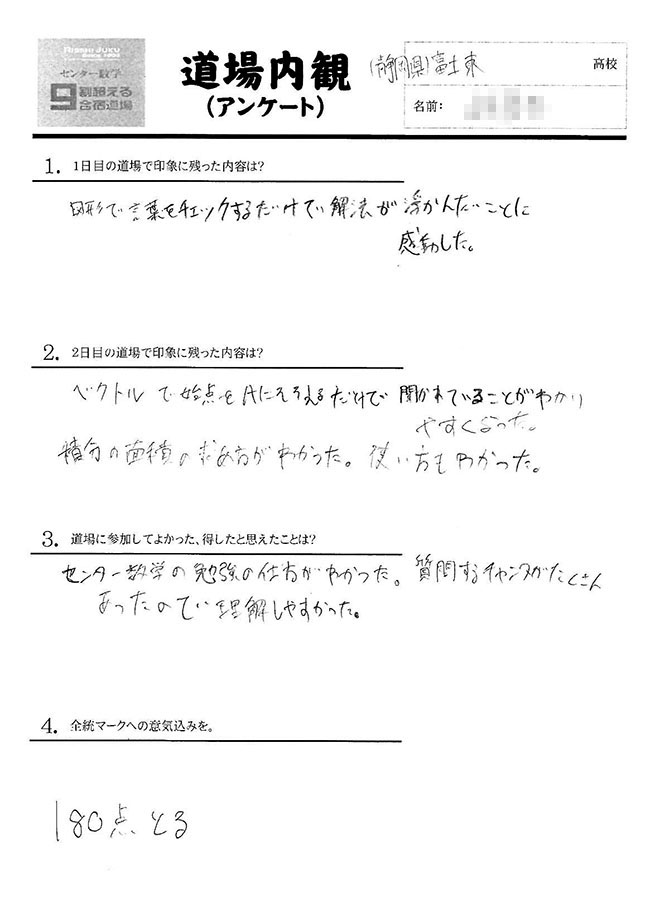 RISSHI JUKU
センター数学
9割超える
合宿道場
道場内観
(アンケート)
(静岡県)富士東 高校
名前:
1. 1日目の道場で印象に残った内容は?
図形で言葉をチェックするだけで解法が浮かんだことに
感動した。
2. 2日目の道場で印象に残った内容は?
ベクトルで始点をAにそろえるだけで聞かれていることがわかり
やすくなった。
積分の面積の求め方がわかった。使い方もわかった。
3. 道場に参加してよかった、得したと思えたことは?
センター数学の勉強の仕方がわかった。質問するチャンスがたくさん
あったので理解しやすかった。
4. 全統マークへの意気込みを。
180点とる